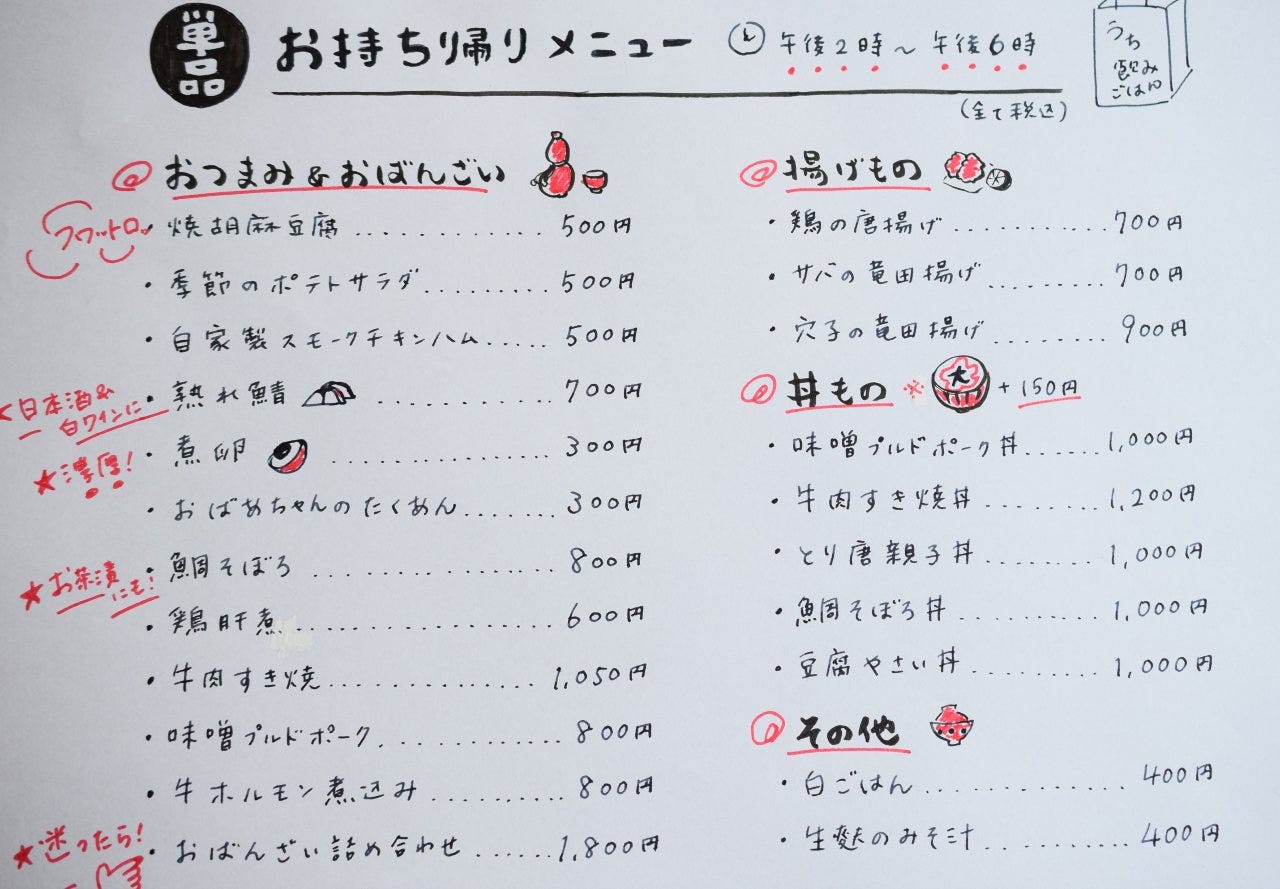 単品 お持ち帰りメニュー 午後2時〜午後6時
うち
飲み
ごはん
(全て税込)
おつまみ&おばんざい
フワットロッ
・焼胡麻豆腐............500円
・季節のポテトサラダ.........500円
・自家製スモークチキンハム......500円
日本酒&
白ワインに
・熟れ鯖...........700円
★濃厚!
・煮卵..............300円
・おばあちゃんのたくあん.......300円
・鯛そぼろ..............800円
★お茶漬
にも!
・鶏肝煮...............600円
・牛肉すき焼..............1,050円
・味噌プルドポーク............800円
・牛ホルモン煮込み.........800円
★迷ったら!
・おばんざい詰め合わせ......1,800円
揚げもの
・鶏の唐揚げ............700円
・サバの竜田揚げ.........700円
・穴子の竜田揚げ.........900円
丼もの ※大+150円
・味噌プルドポーク丼......1,000円
・牛肉すき焼丼........1,200円
・とり唐親子丼........1,000円
・鯛そぼろ丼..........1,000円
・豆腐やさい丼.........1,000円
その他
・白ごはん..............400円
・生麩のみそ汁...........400円